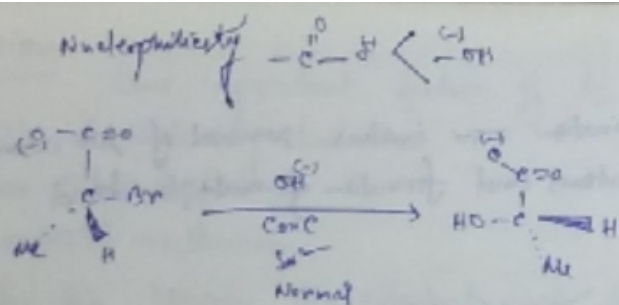 Nucleophilicity -C-O < -OH
O
(-)
(-)O-C=O
C-Br
Me H
OH(-)
Conc
SN
Normal
(-)
O
C=O
HO-C H
Me